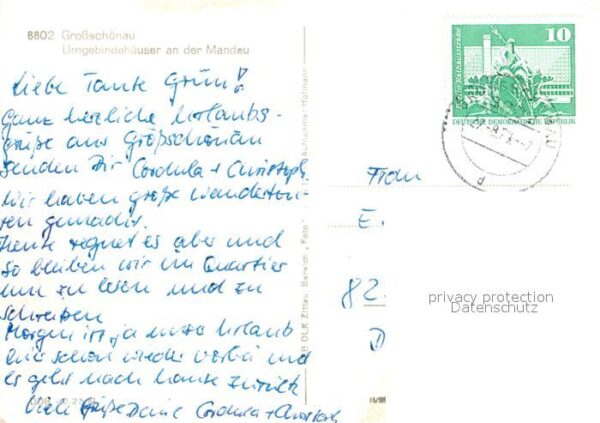 8802 Großschönau
Umgebindehäuser an der Mandau
Liebe Tante Grün!
Ganz herzliche Urlaubs-
grüße aus Großschönau
senden Dir Cordula + Christoph.
Wir haben große Wandertou-
ren gemacht.
Heute regnet es aber und
so bleiben wir im Quartier
um zu lesen und zu
schreiben
Morgen ist ja unser Urlaub
hier schon wieder vorbei und
es geht nach Hause zurück
Viele Grüße Deine Cordula + Christoph
DLK Zittau, Bereich „Foto“
Aufnahme:
10
Berlin Rathausstraße
DEUTSCHE DEMOKRATISCHE REPUBLIK
Frau
E.
82
D
privacy protection
Datenschutz